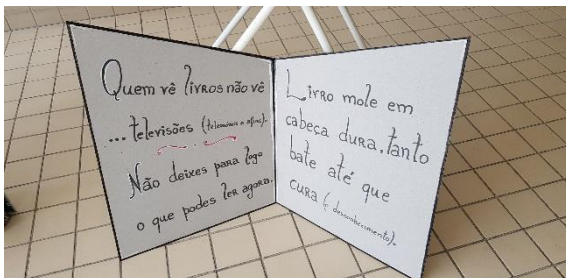 Quem vê livros não vê
... televisões (telemóveis e afins).
Não deixes para logo
o que podes ler agora.
Livro mole em
cabeça dura, tanto
bate até que
cura (o desconhecimento).